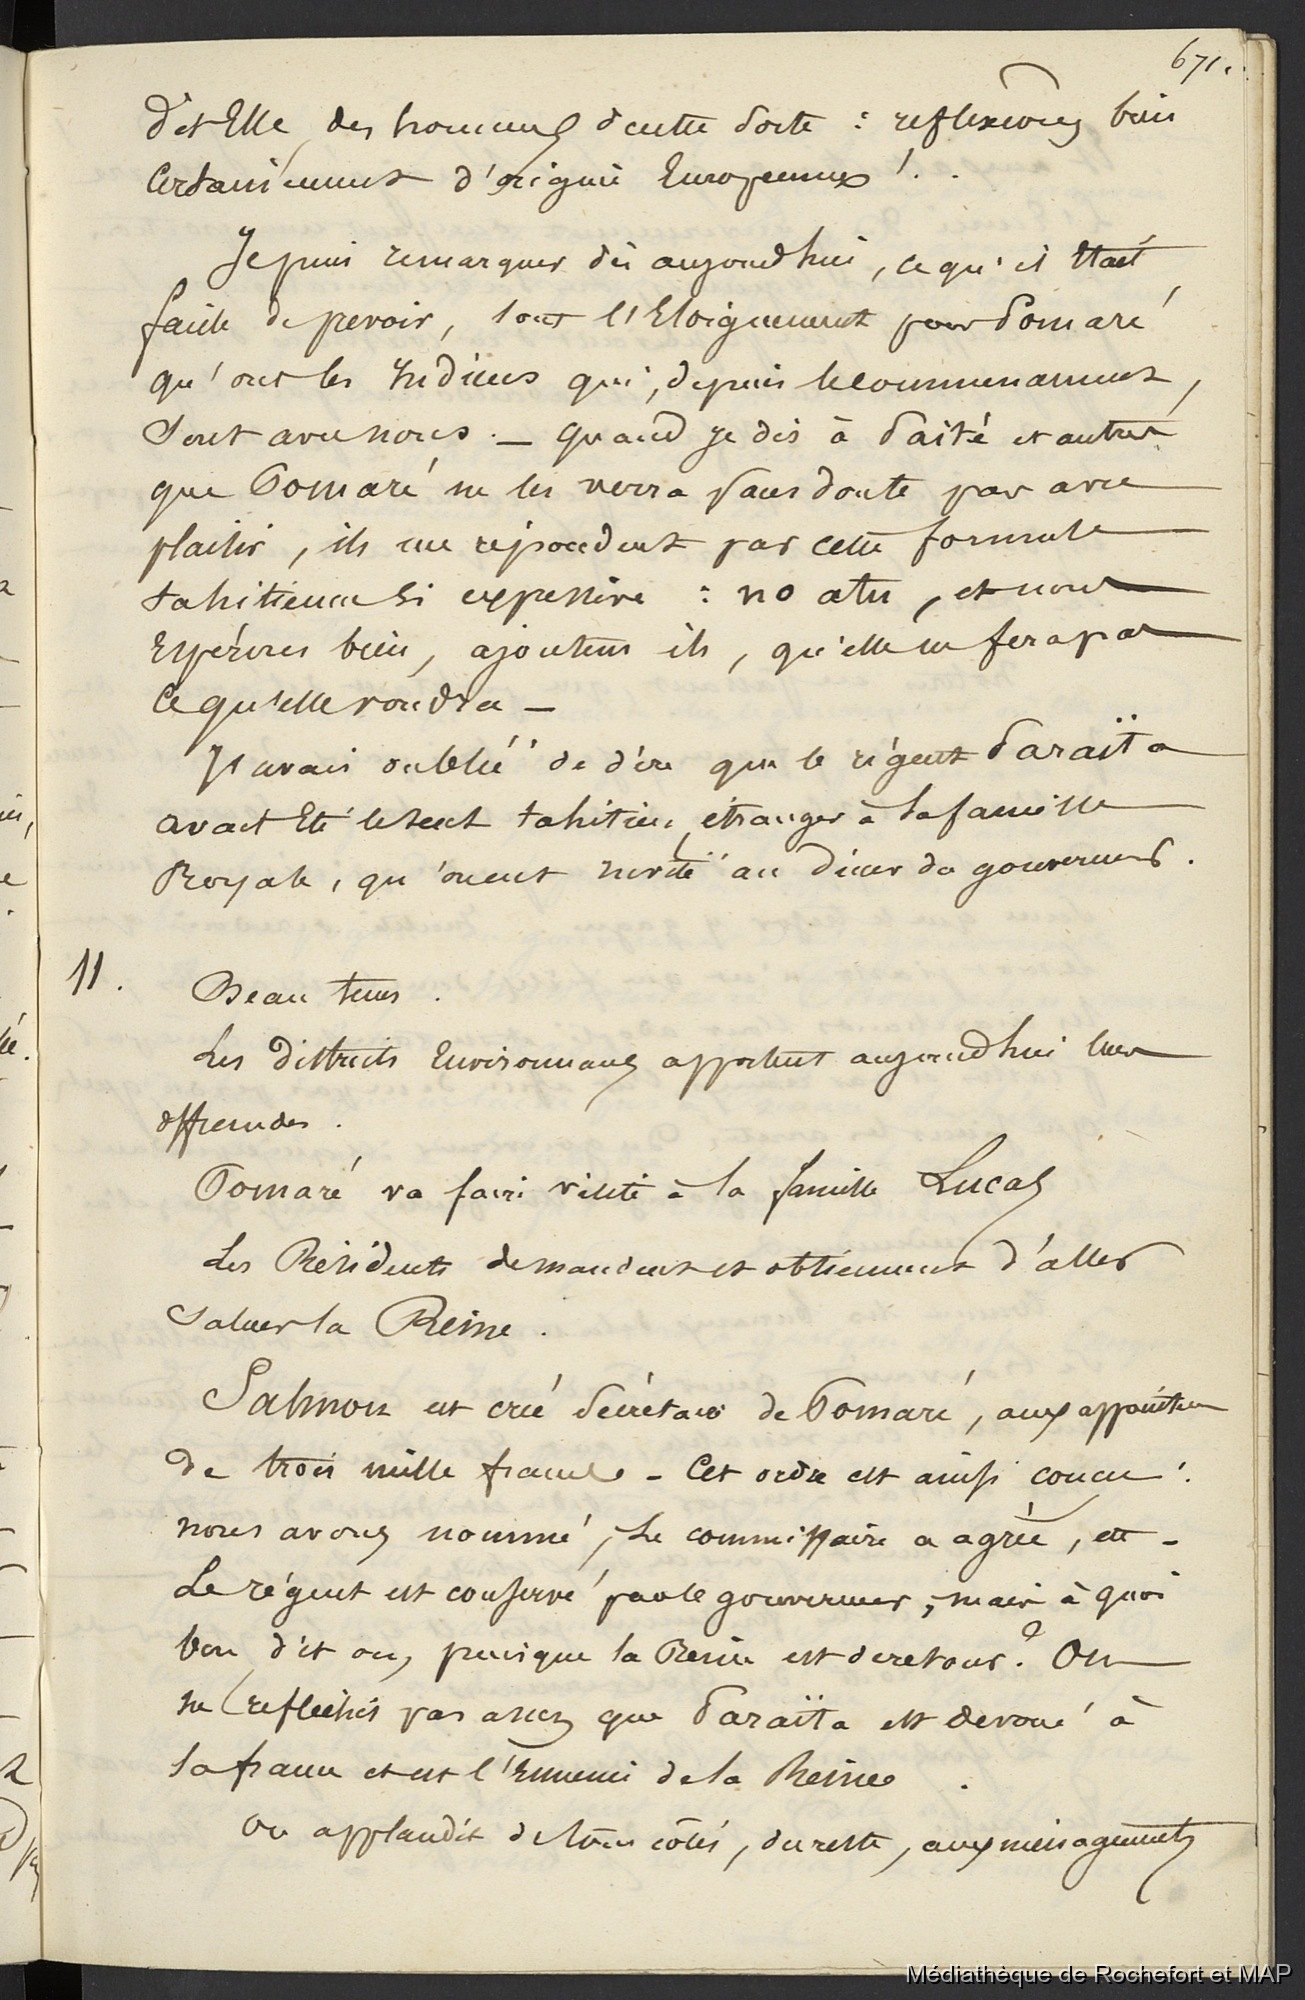 671.
dit Elle des hommes de cette sorte : reflexions bien
Certainement d'origine Européenne ! .
Je puis remarquer dès aujourd hui, ce qu'il était
facile de prevoir, tout l'Eloignement pour Pomaré
qu'ont les Indiens qui, depuis le commencement,
Sont avec nous. — quand Je dis à Païté et autres
que Pomaré ne les verra sans doute pas avec
plaisir, ils me repondent par cette formule
tahitienne si expressive : no atu, et nous
Espérons bien, ajoutent ils, qu'elle ne fera pas
Ce qu'elle voudra —
J'avais oublié de dire que le régent Paraïta
avait Eté le seul tahitien, étranger à la famille
Royale, qu'on eut invité au diner du gouverneur.
11.
Beau tems.
Les districts Environnans apportent aujourd hui leurs
offrandes.
Pomaré va faire visite à la famille Lucas
Les Résidents demandent et obtiennent d'aller
Saluer la Reine.
Salmon est créé Secrétaire de Pomaré, aux appointem
de trois mille francs - Cet ordre est ainsi concu :
nous avons nommé, Le commissaire a agréé, etc -
Le régent est conservé par le gouverneur; mais à quoi
bon dit on, puisque la Reine est de retour ? On
ne reflechit pas assez que Paraïta est devoué à
la france et est l'Ennemi de la Reine.
On applaudit de tous côtés, du reste, aux ménagements
Médiathèque de Rochefort et MAP